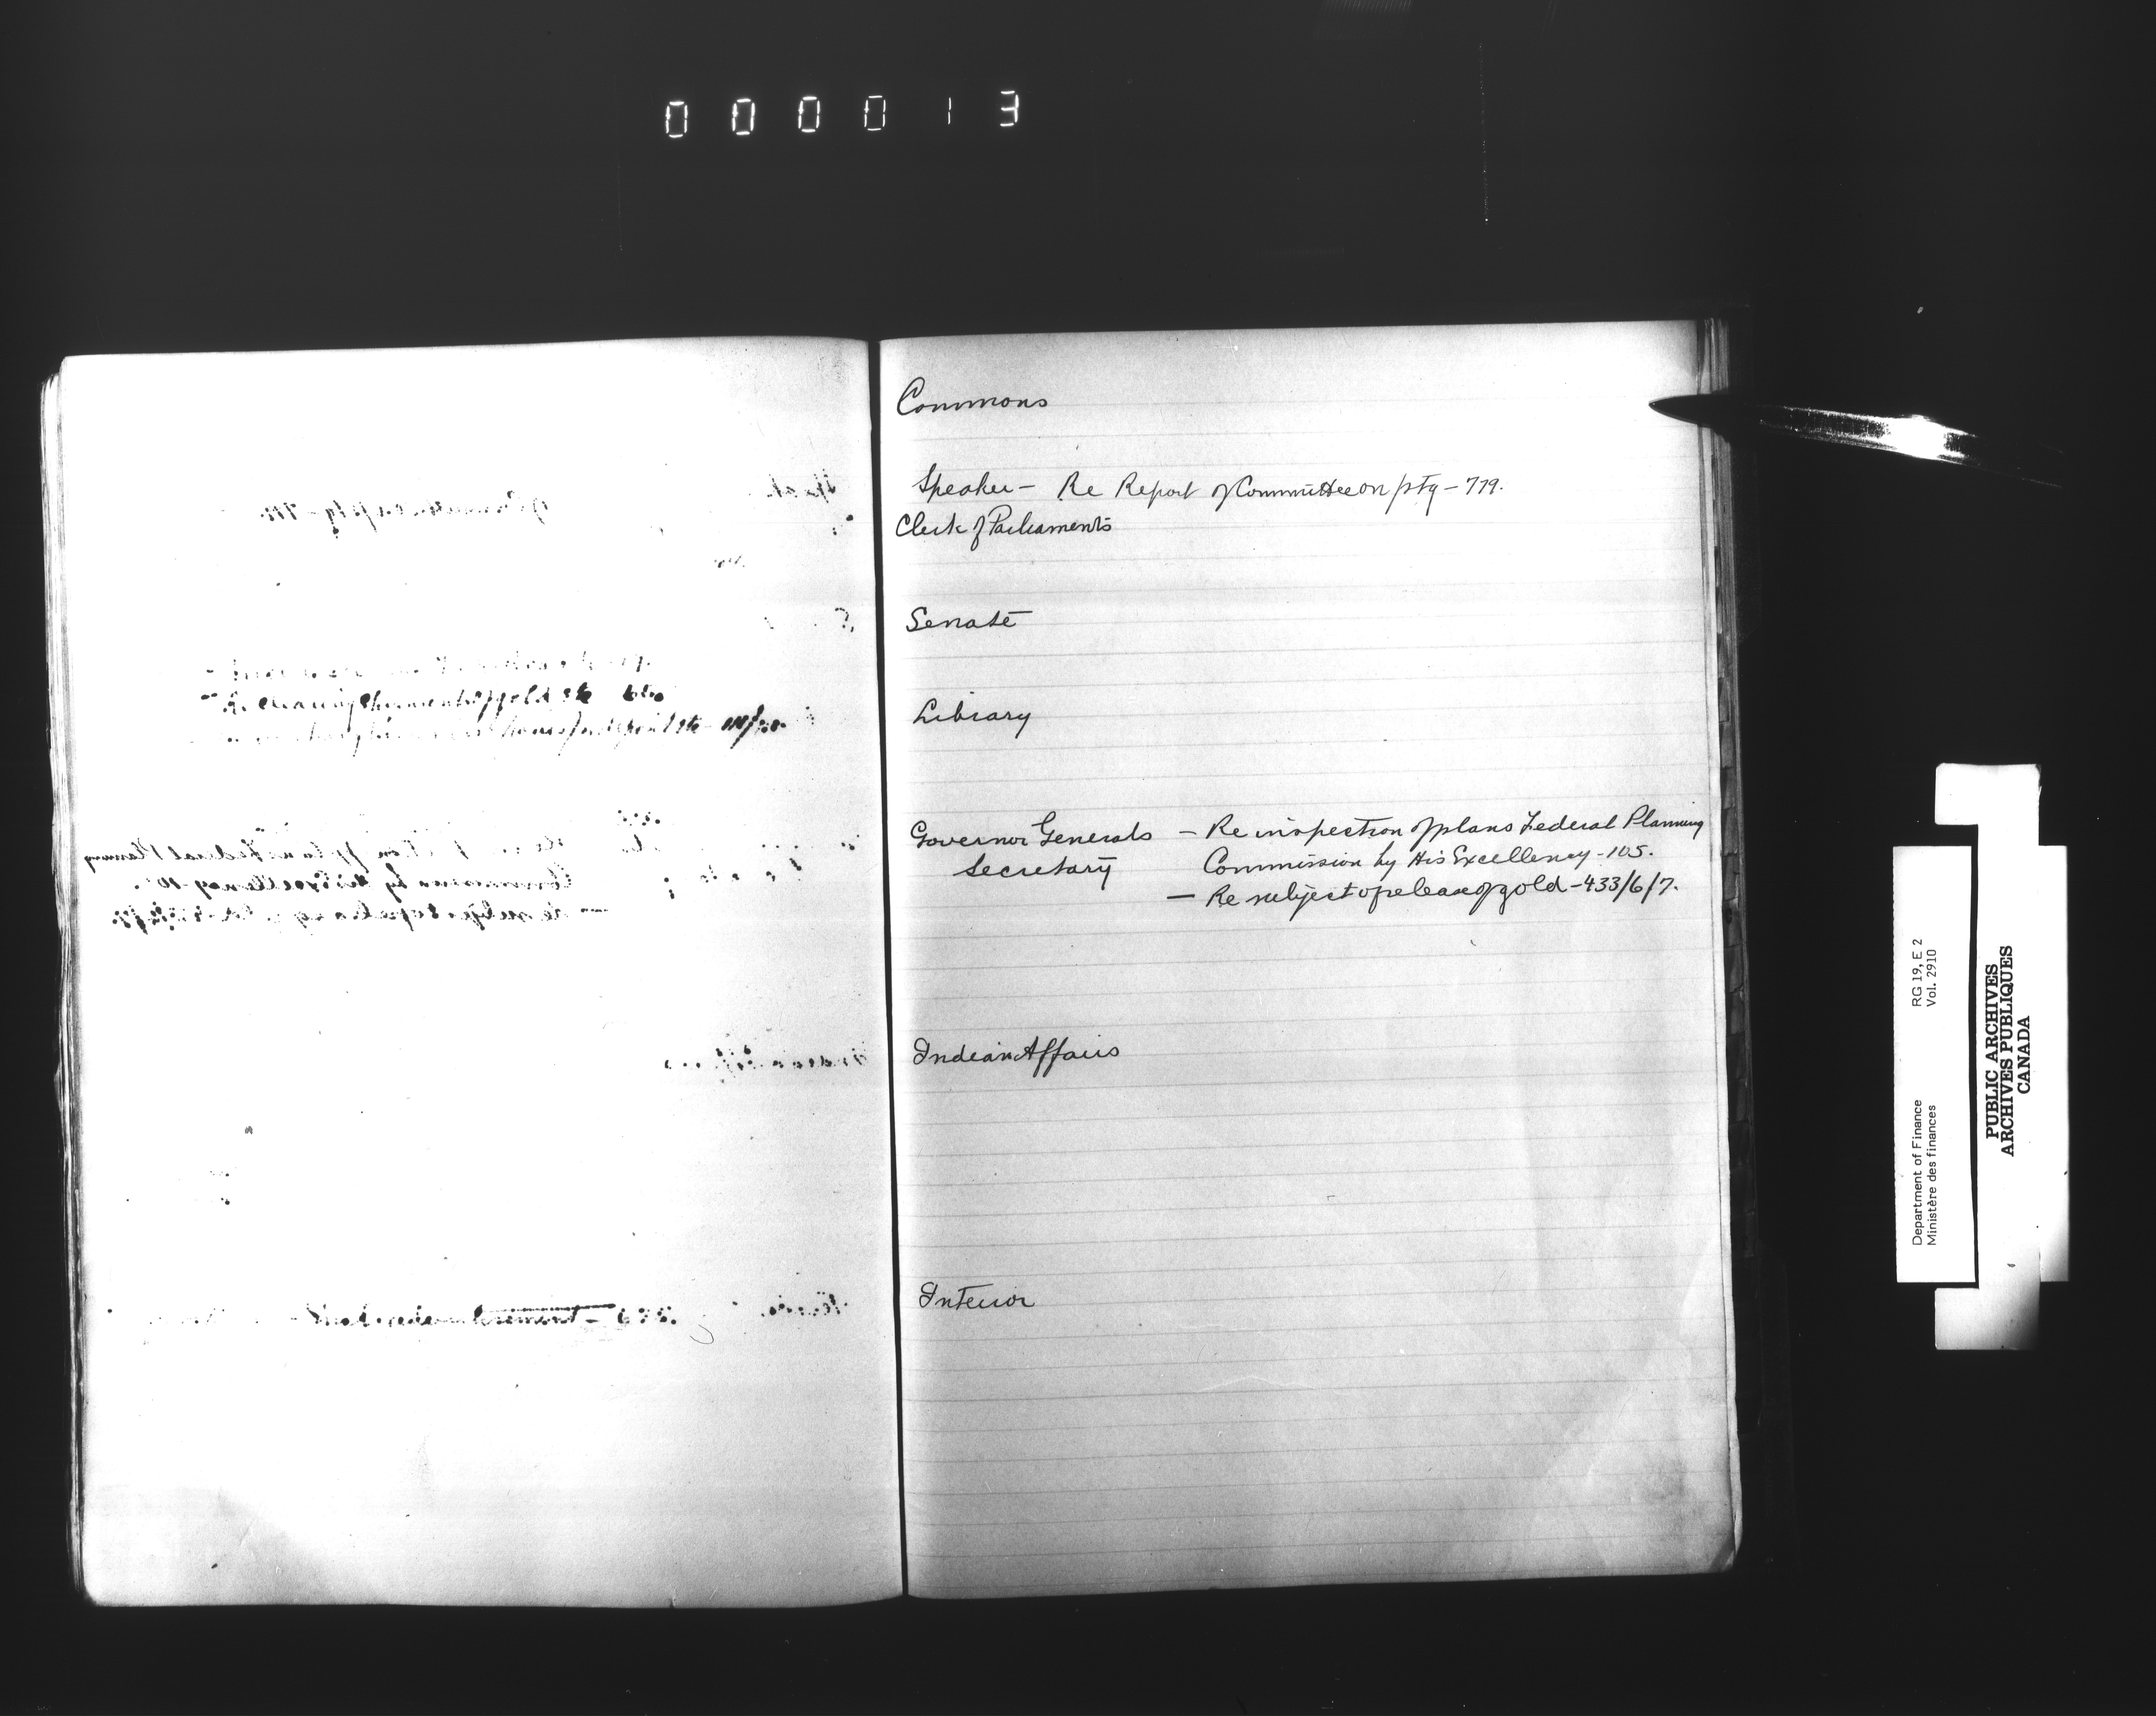 000013
Commons
Speaker - Re Report of Committee on ptg - 779.
Clerk of Parliaments
Senate
Library
Governor Generals - Re inspection of plans Federal Planning
Secretary Commission by His Excellency - 105.
- Re subject of release of gold - 433/6/7.
Indian Affairs
Interior
Department of Finance RG 19, E 2
Ministère des finances Vol. 2910
PUBLIC ARCHIVES
ARCHIVES PUBLIQUES
CANADA